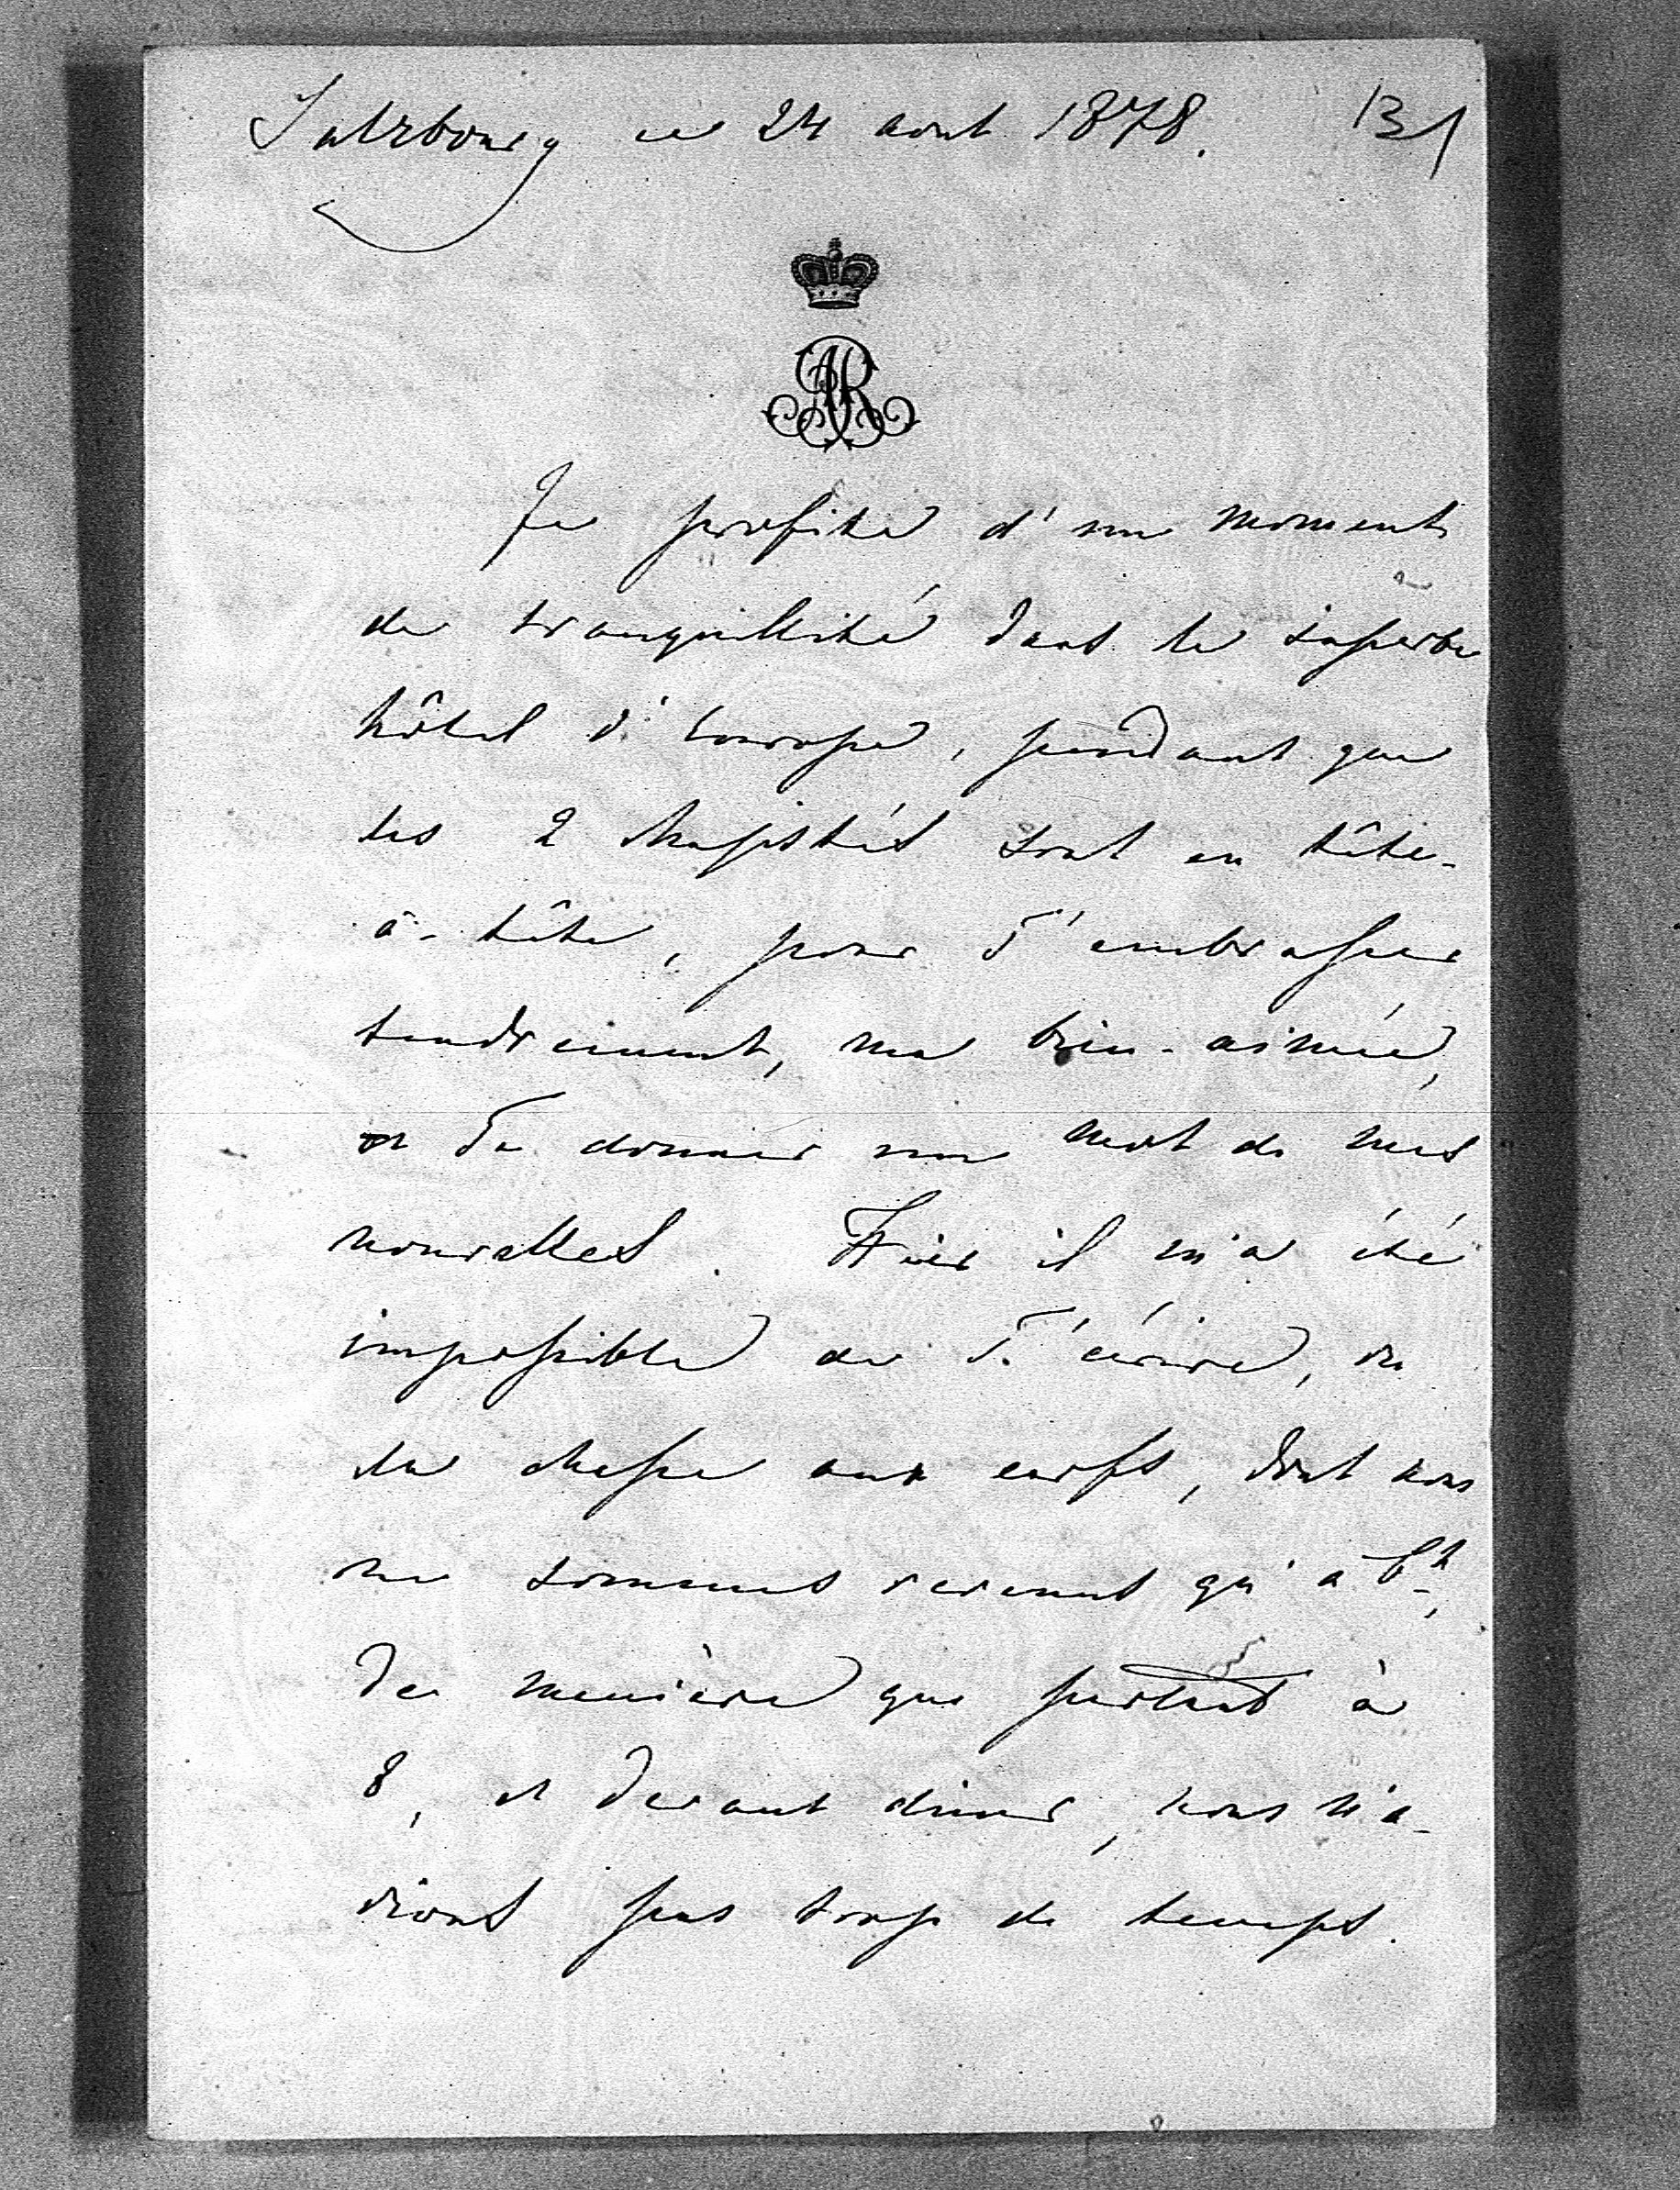 Salzbourg ce 24 août 1878. 131
AR
Je profite d'un moment
de tranquillité dans le superbe
hôtel d'Europe, pendant que
les 2 Majestés sont en tête-
à-tête, pour T'embrasser
tendrement, ma bien-aimée,
et Te donner un mot de mes
nouvelles. Hier il m'a été
impossible de T'écrire, vu
la chasse aux cerfs, dont nous
ne sommes revenus qu'à 6h,
De manière que partant à
8, et devant diner, nous n'a-
vions pas trop de temps.